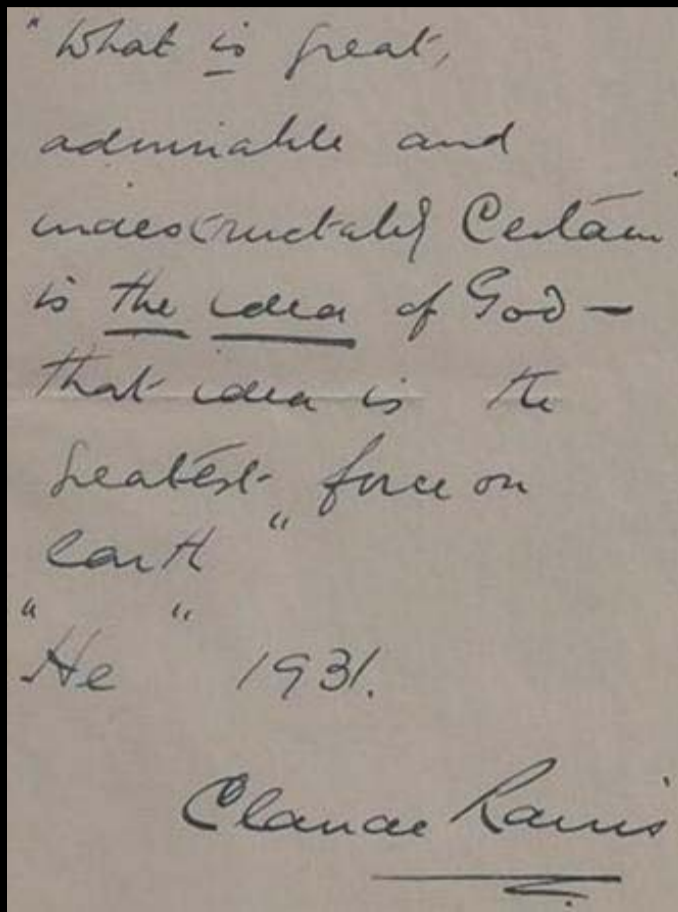 "What is great,
admirable and
indestructably Certain
is the idea of God —
that idea is the
greatest force on
earth"
"He" 1931.
Claude Rains